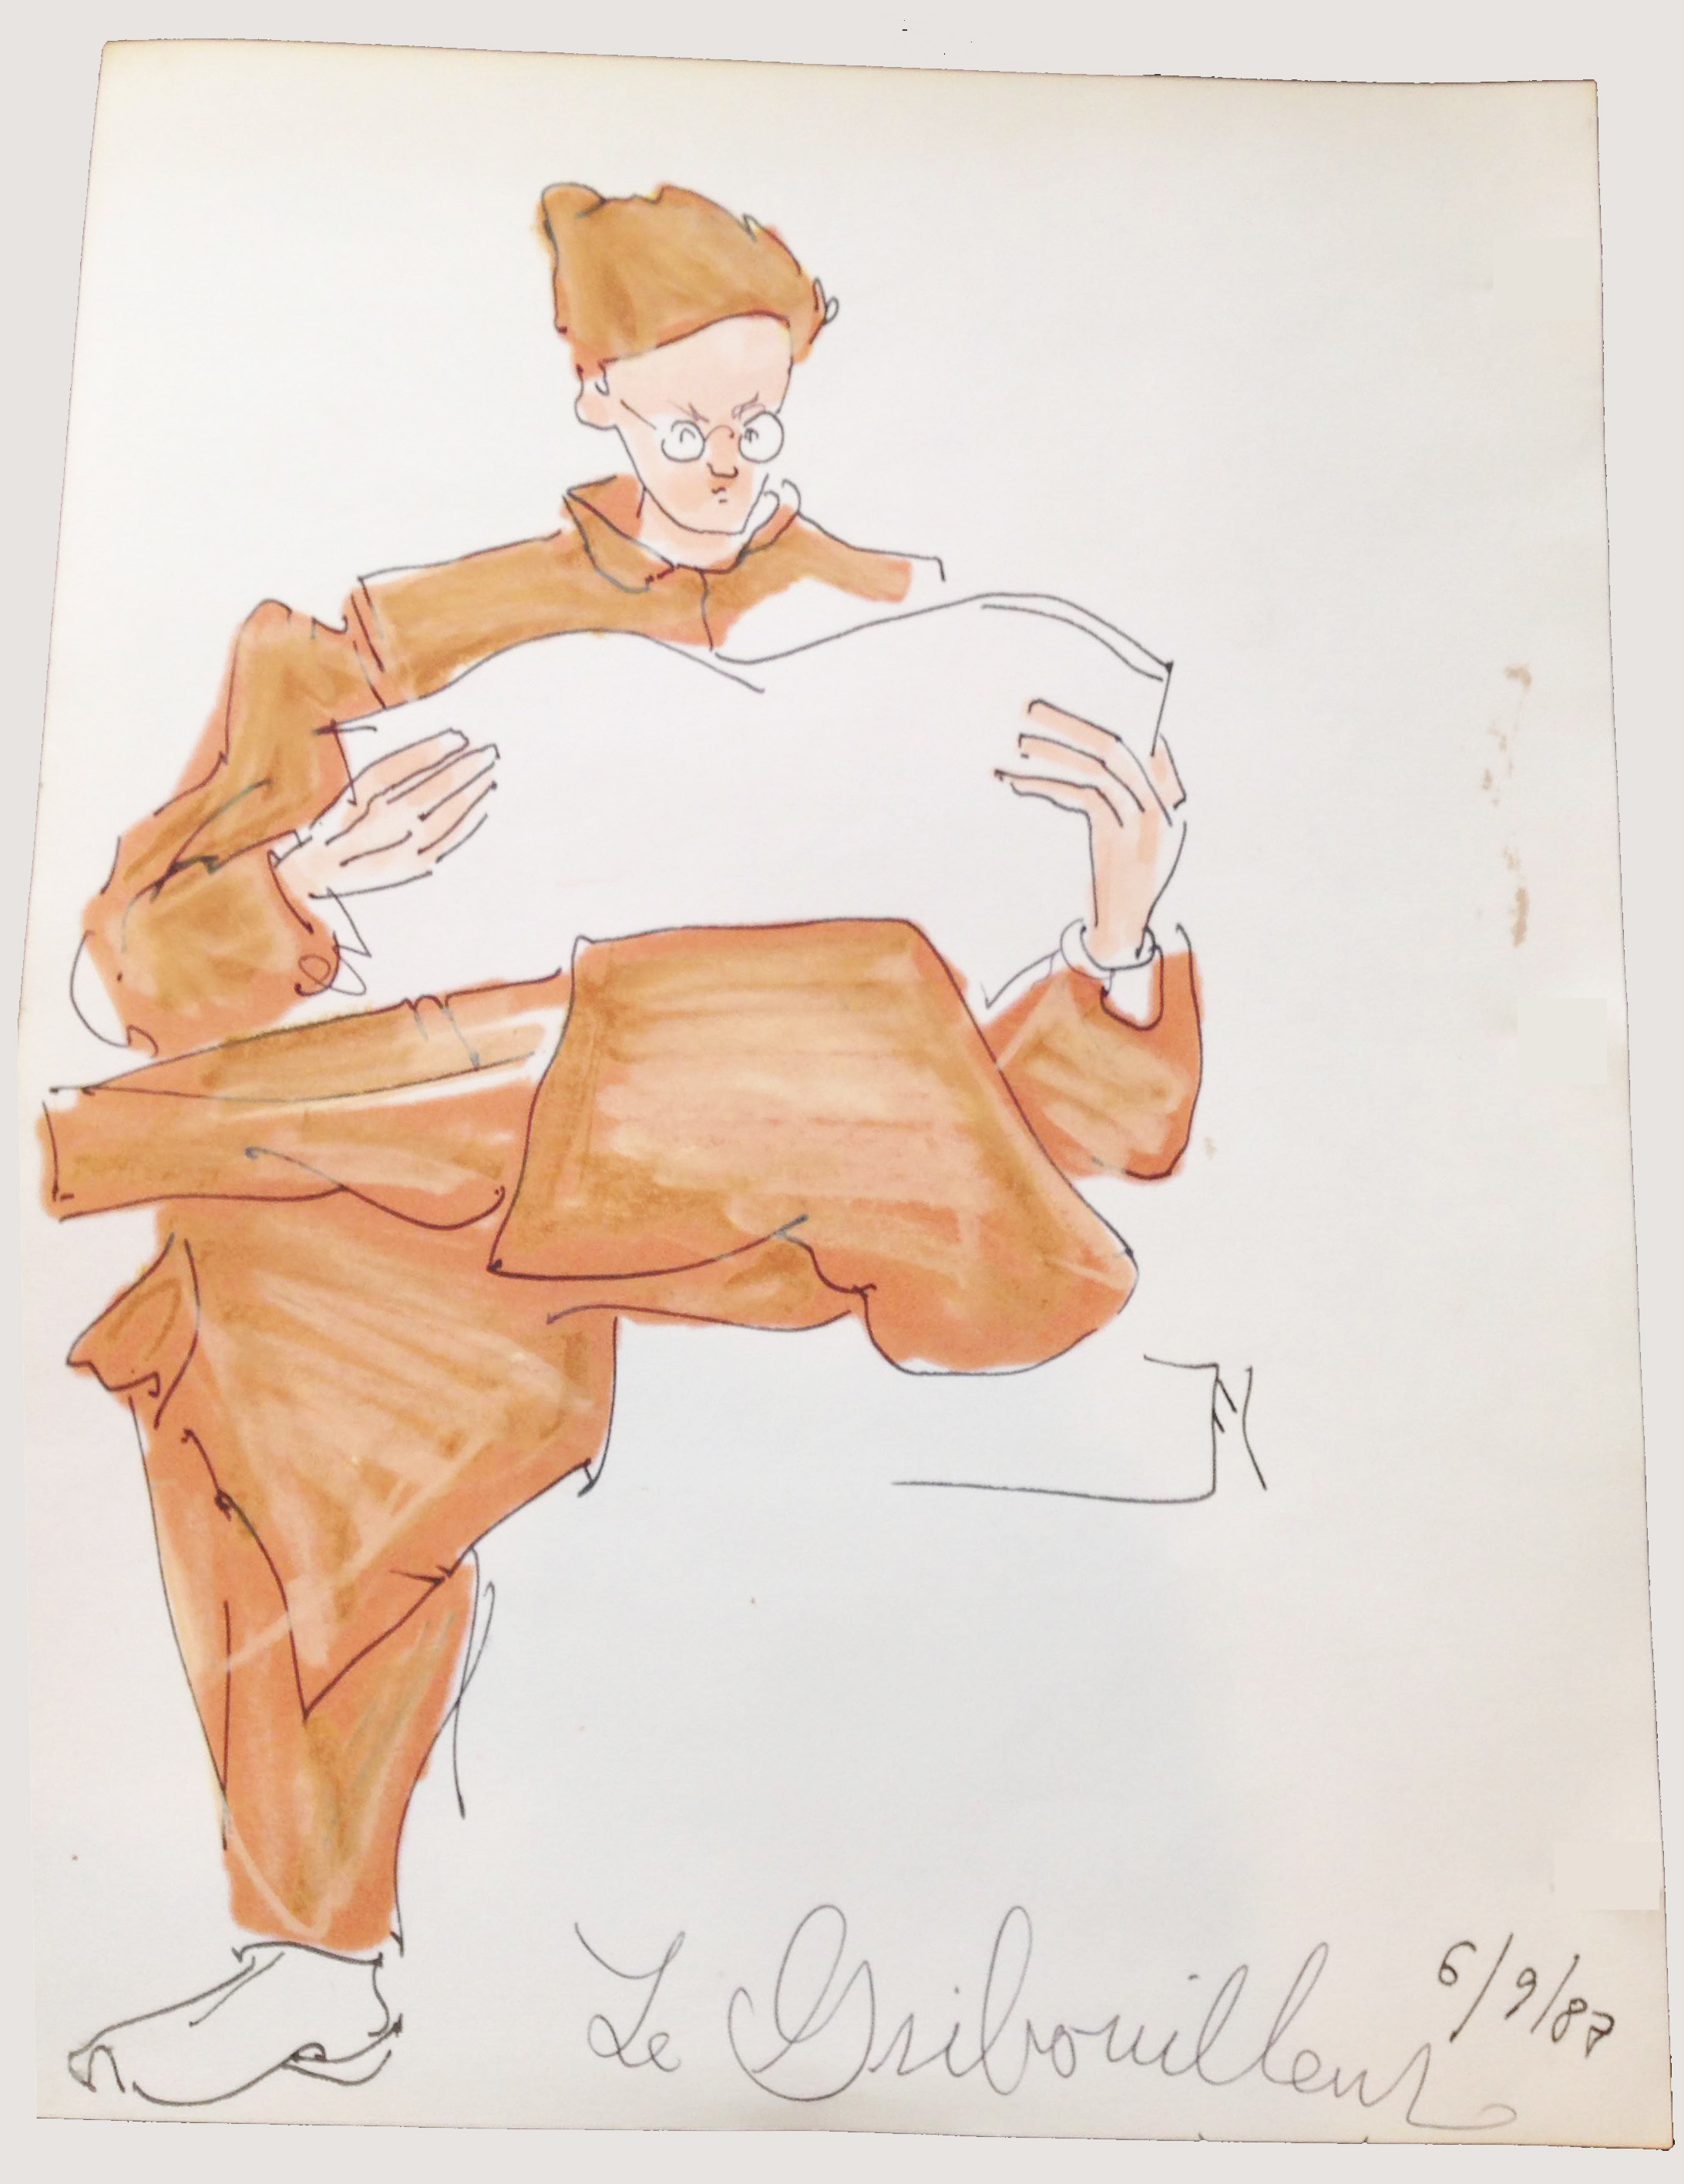 Le Gribouilleur
6/9/87